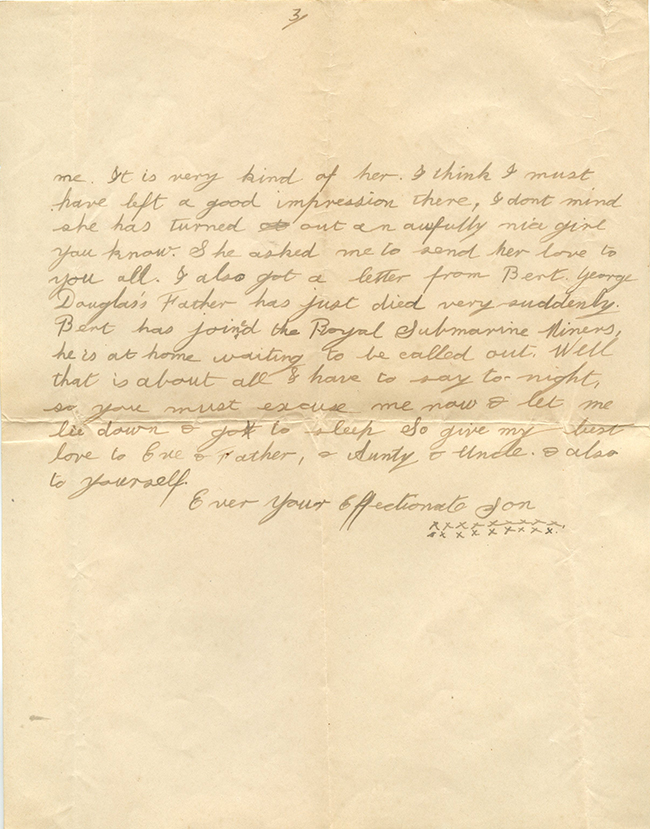 3/
me. It is very kind of her. I think I must
have left a good impression there, I dont mind
she has turned out an awfully nice girl
you know. She asked me to send her love to
you all. I also got a letter from Bert. George
Douglas's Father has just died very suddenly.
Bert has join'd the Royal Submarine Miners,
he is at home waiting to be called out. Well
that is about all I have to say to-night,
so you must excuse me now & let me
lie down & go to sleep So give my best
love to Eve & Father, & Aunty & Uncle. & also
to yourself.
Ever Your Effectionate Son
xxxxxxxxxx.
xxxxxxxxx.